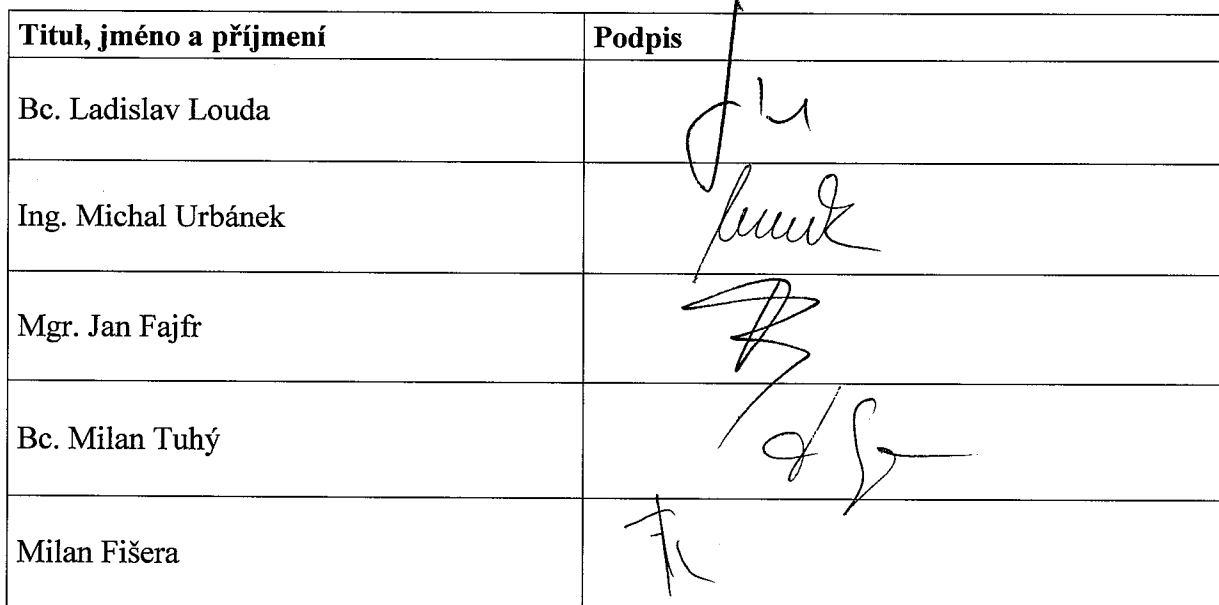 Titul, jméno a příjmení Podpis
Bc. Ladislav Louda
Ing. Michal Urbánek
Mgr. Jan Fajfr
Bc. Milan Tuhý
Milan Fišera